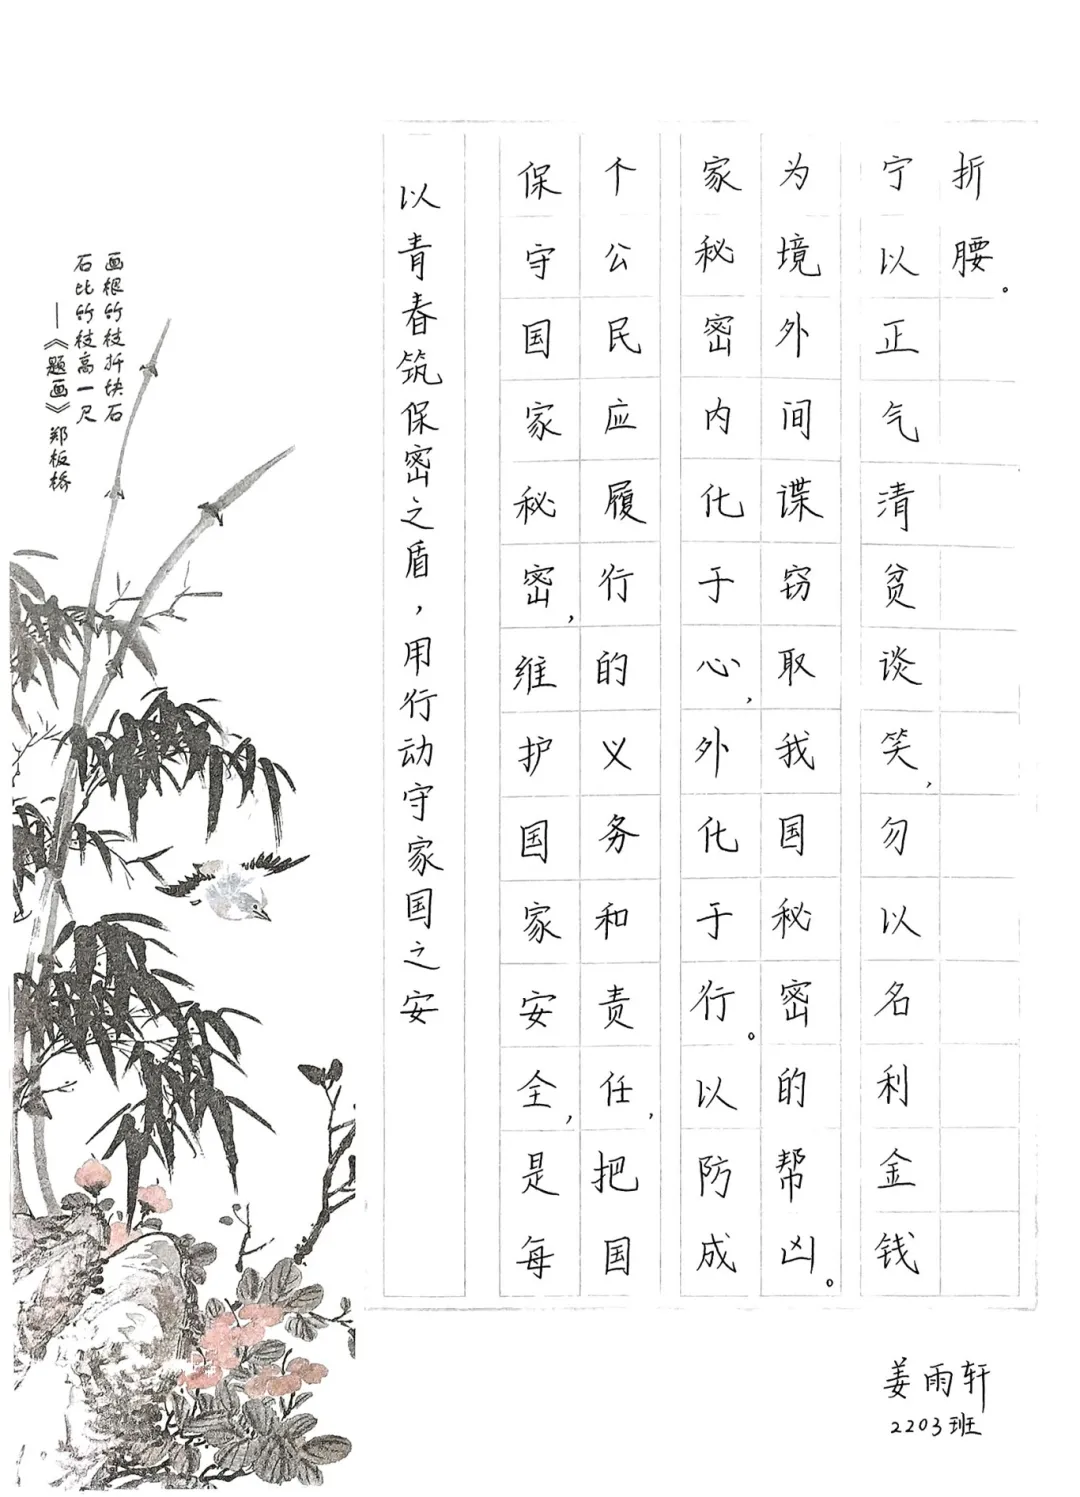 画根竹枝扦块石
石比竹枝高一尺
—《题画》郑板桥
以青春筑保密之盾，用行动守家国之安
保守国家秘密，维护国家安全，是每
个公民应履行的义务和责任，把国
家秘密内化于心，外化于行。以防成
为境外间谍窃取我国秘密的帮凶。
宁以正气清贫谈笑，勿以名利金钱
折腰。
姜雨轩
2203班